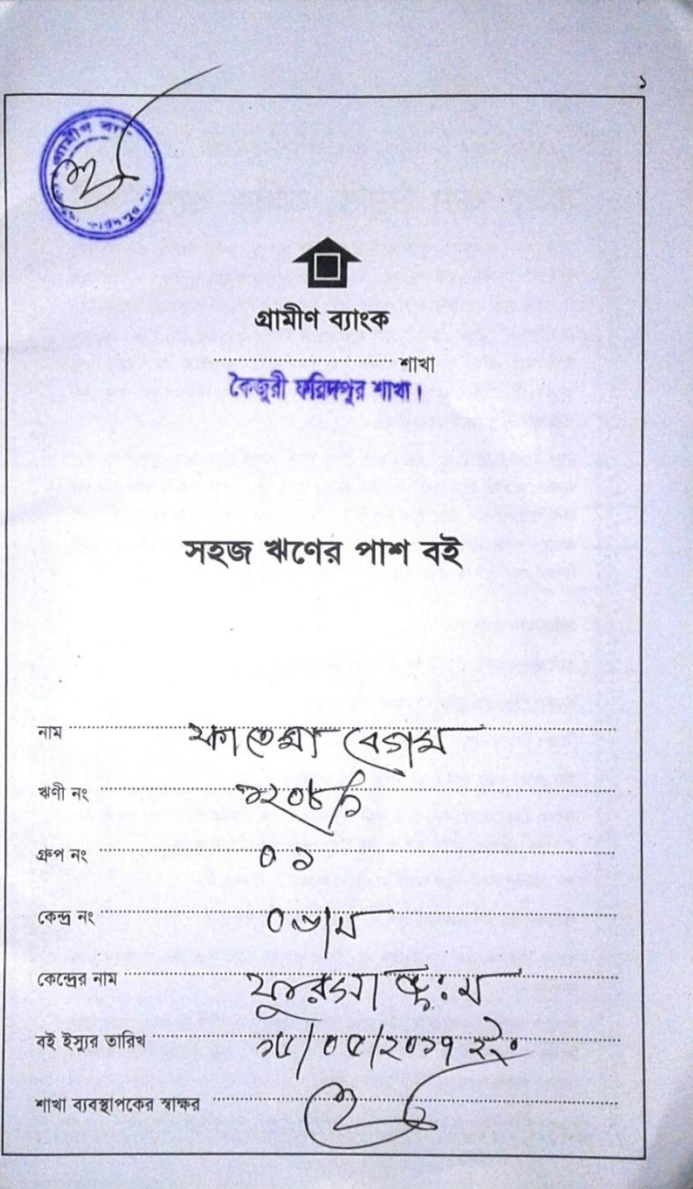 ১
গ্রামীণ ব্যাংক
শাখা
কৈজুরী ফরিদপুর শাখা।
সহজ ঋণের পাশ বই
নাম ফাতেমা বেগম
ঋণী নং ১২০৮/১
গ্রুপ নং ০১
কেন্দ্র নং ০৬/ম
কেন্দ্রের নাম
বই ইস্যুর তারিখ ১৫/০৫/২০১৭ ইং
শাখা ব্যবস্থাপকের স্বাক্ষর